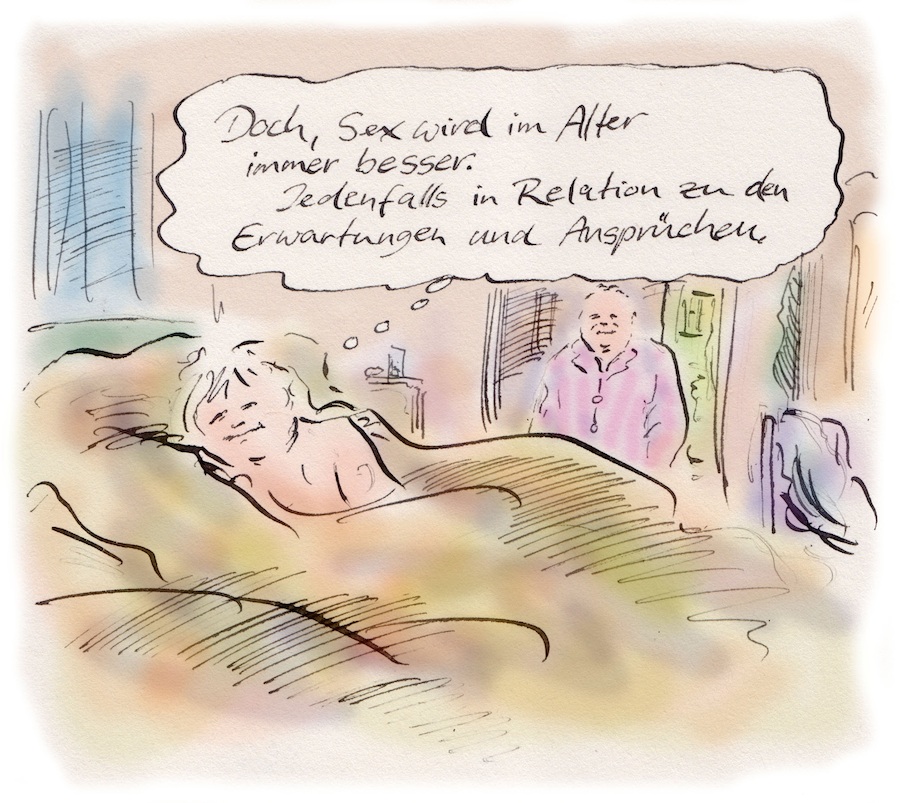 Doch, Sex wird im Alter
immer besser.
Jedenfalls in Relation zu den
Erwartungen und Ansprüchen.